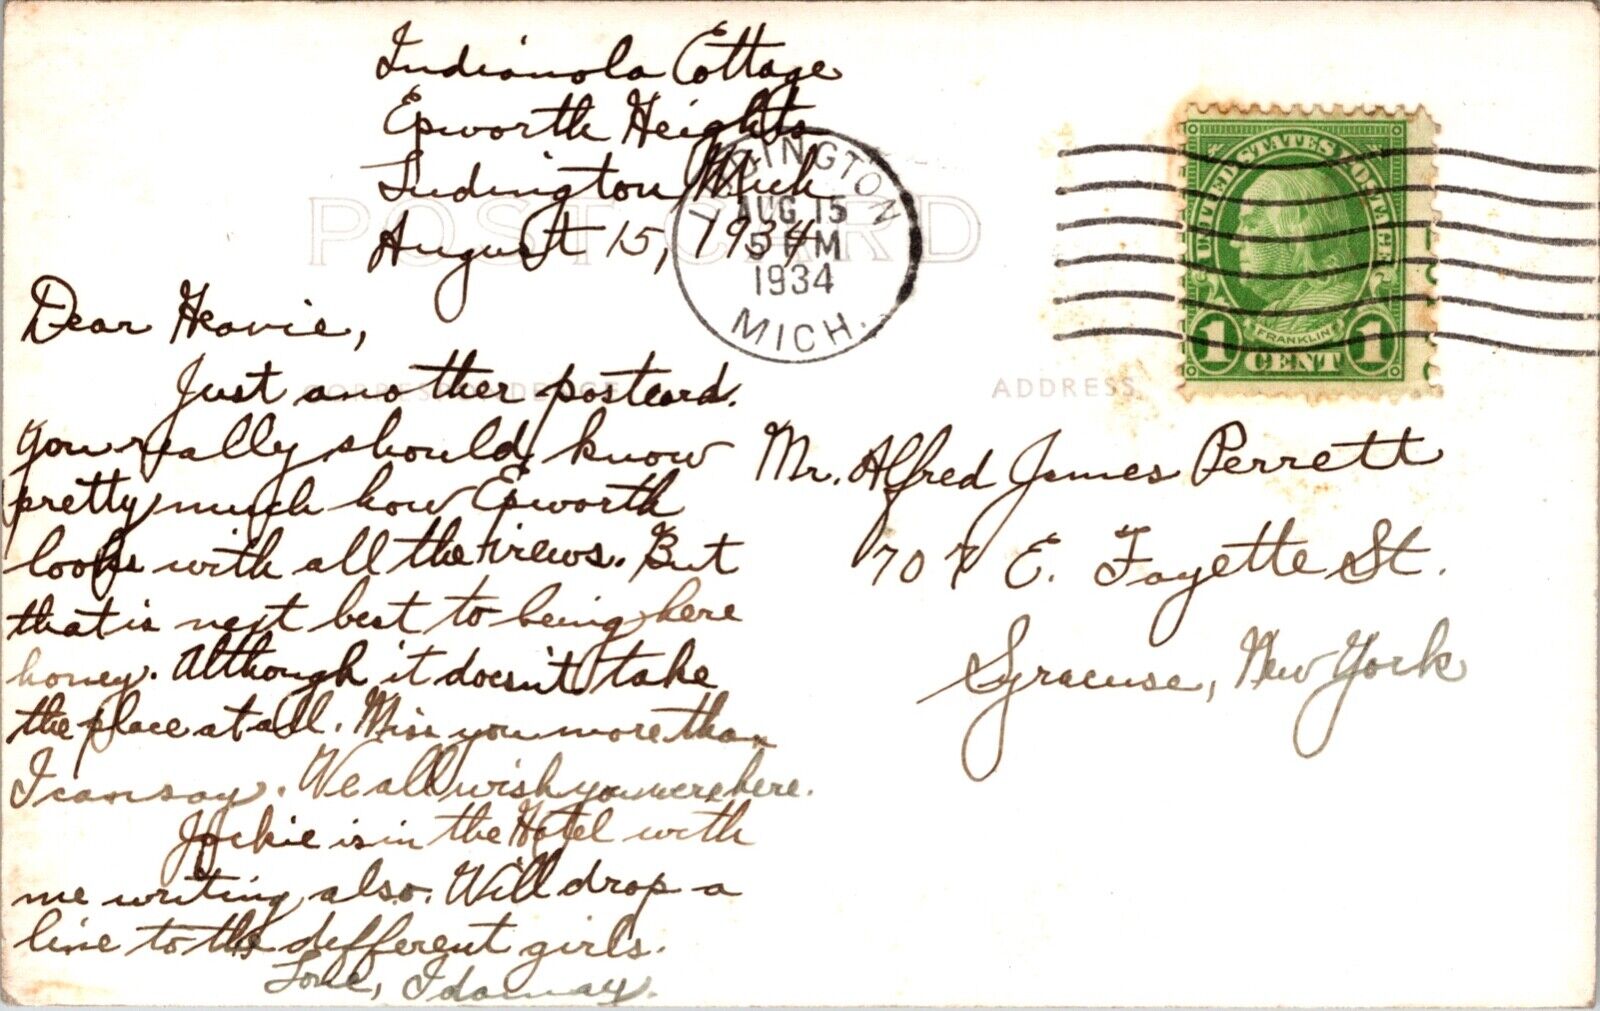 Indianola Cottage
Epworth Heights
Ludington, Mich
August 15, 1934
LUDINGTON
AUG 15
5 PM
1934
MICH.
UNITED STATES POSTAGE
FRANKLIN
1 CENT 1
POST CARD
CORRESPONDENCE
ADDRESS
Dear Heavie,
Just another postcard.
You really should know
pretty much how Epworth
looks with all the views. But
that is next best to being here
honey. Although it doesn't take
the place at all. Miss you more than
I can say. We all wish you were here.
Jackie is in the Hotel with
me writing also. Will drop a
line to the different girls.
Love, Idamay.
Mr. Alfred James Perrett
707 E. Fayette St.
Syracuse, New York